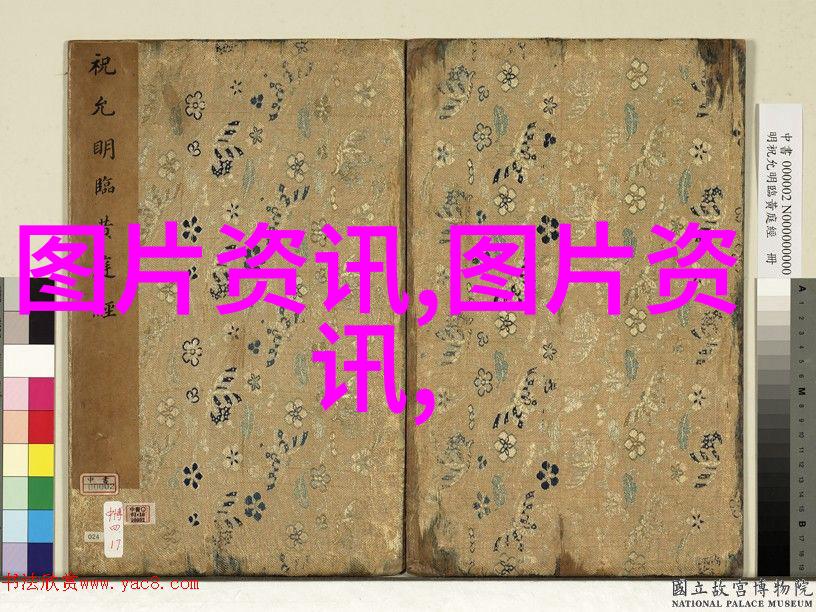 祝允明臨黃庭經
图片资讯,图片资
讯,
中書 000002 N000000000
明祝允明臨黃庭經 冊
中書
00002
中書
024
中博
四
17
A
M
B
书法欣赏www.yac8.com
國立故宮博物院
NATIONAL PALACE MUSEUM